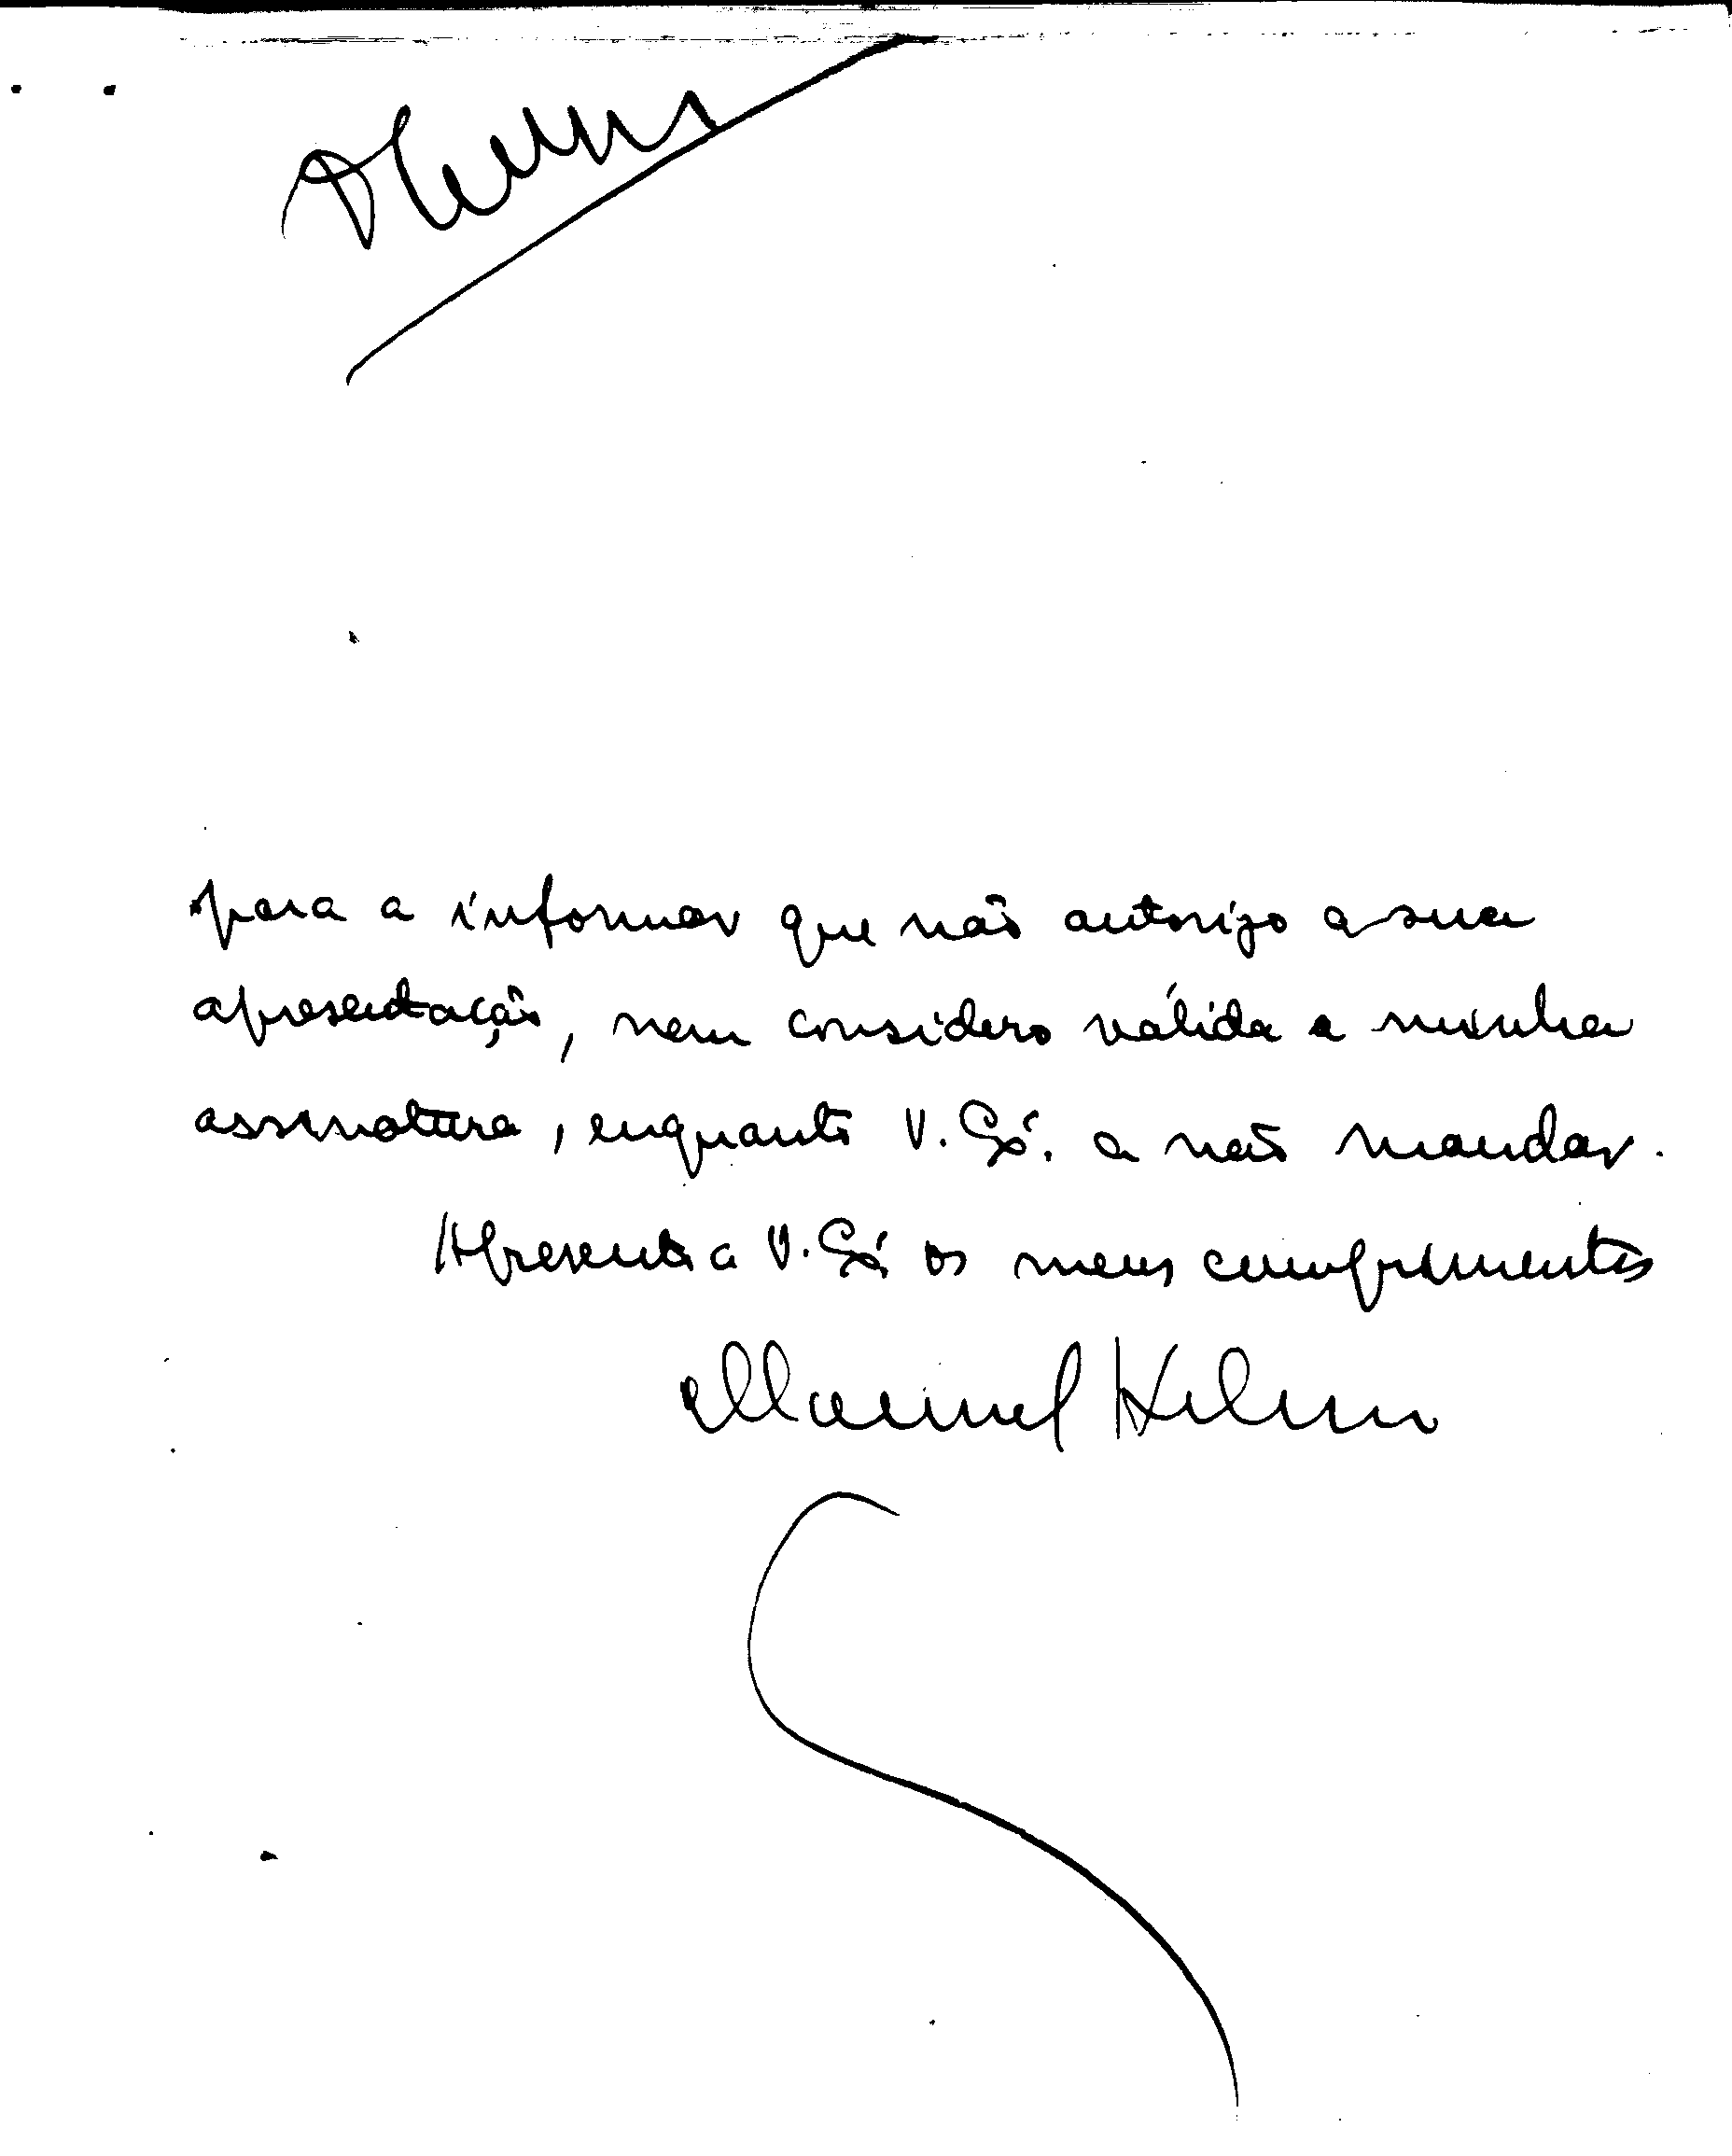 para a informar que não autorizo a sua
apresentação, nem considero válida a minha
assinatura, enquanto V. Exª. a não mandar.
Apresento a V. Exª. os meus cumprimentos
Manuel